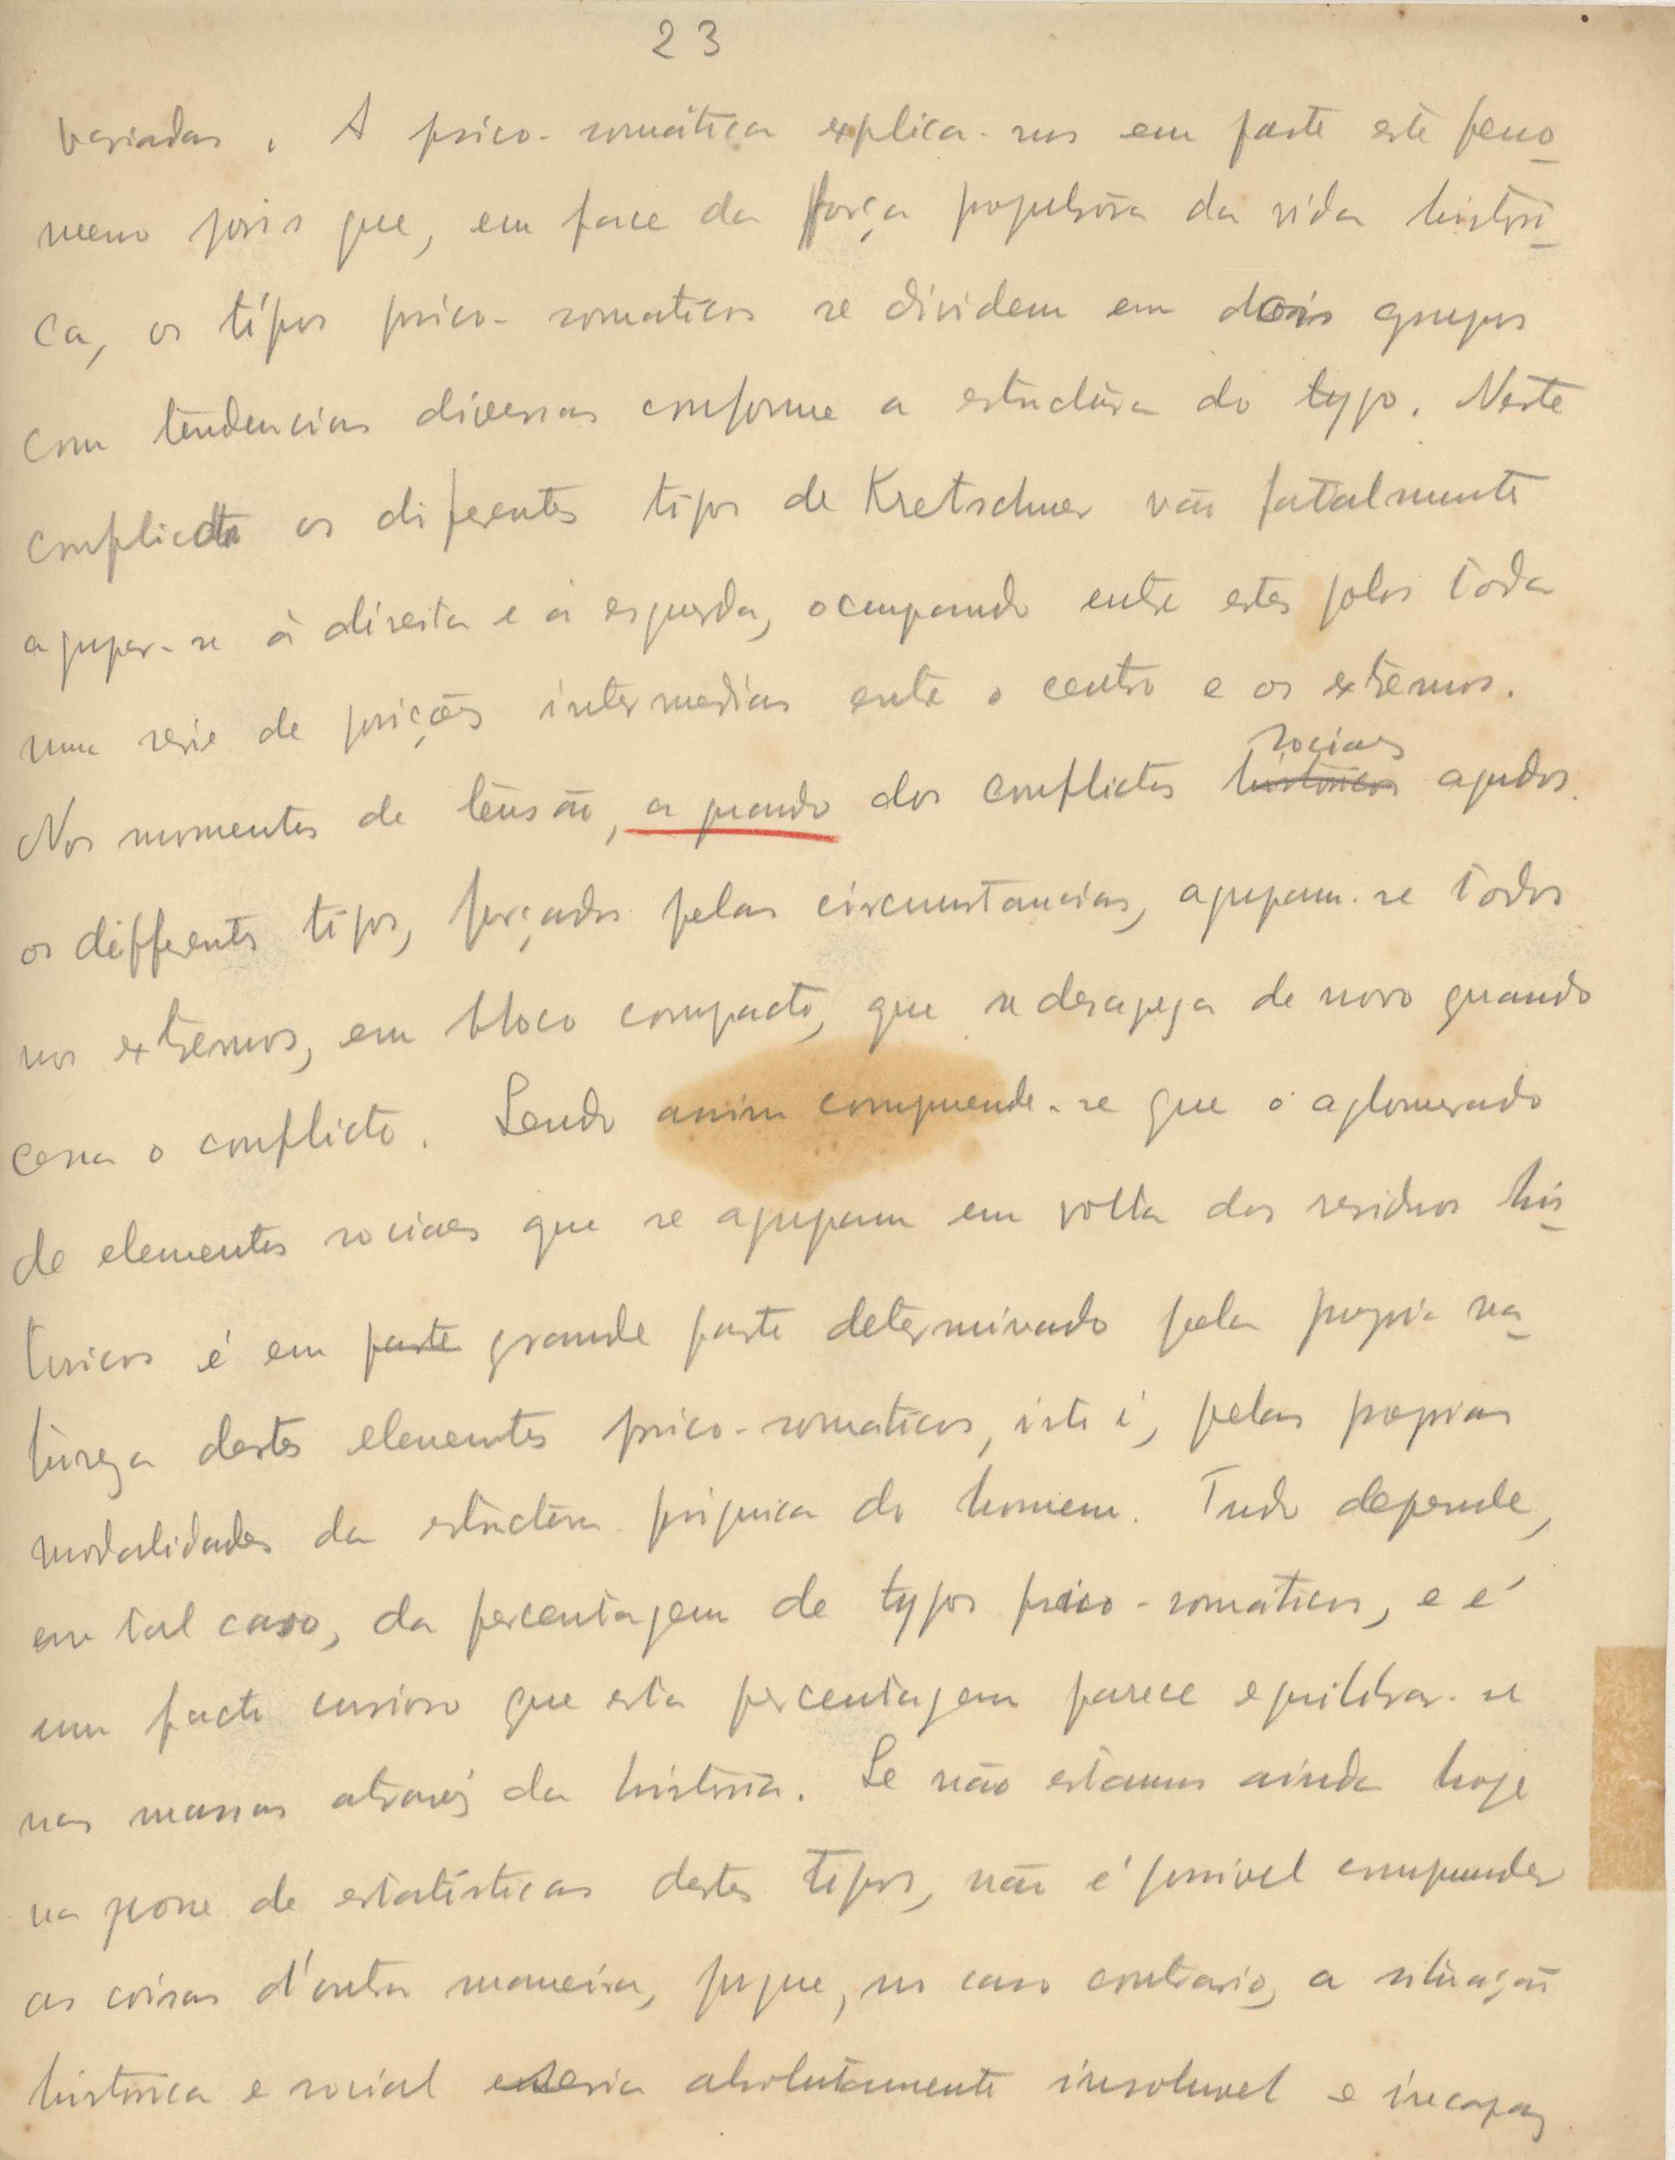 23
variadas. A psico-somática explica-nos em parte este feno
meno pois que, em face da força propulsôra da vida histori
ca, os típos psico-somaticos se dividem em dois grupos
com tendencias diversas conforme a estructura do typo. Neste
conflicto os diferentes tipos de Kretschmer vão fatalmente
agrupar-se à direita e á esquerda, ocupando entre estes polos toda
uma serie de posições intermedias entre o centro e os extremos.
sociaes
Nos momentos de tensão, a quando dos conflictos historicos agudos.
os differentes tipos, forçados pelas circumstancias, agrupam-se todos
nos extremos, em bloco compacto, que se desagrega de novo quando
cessa o conflicto. Sendo assim comprende-se que o aglomerado
de elementos sociaes que se agrupam em volta dos residuos his
toricos é em parte grande parte determinado pela propria na
tureza destes elementos psico-somaticos, isto é, pelas proprias
modalidades da estructura psiquica do homem. Tudo depende,
em tal caso, da percentagem de typos psico-somaticos, e é
um facto curioso que esta percentagem parece equilibrar-se
nas massas através da historia. Se não estamos ainda hoje
na posse de estatísticas destes tipos, não é possivel comprender
as coisas d'outra maneira, porque, no caso contrario, a situação
histórica e social seria absolutamente insoluvel e incapaz